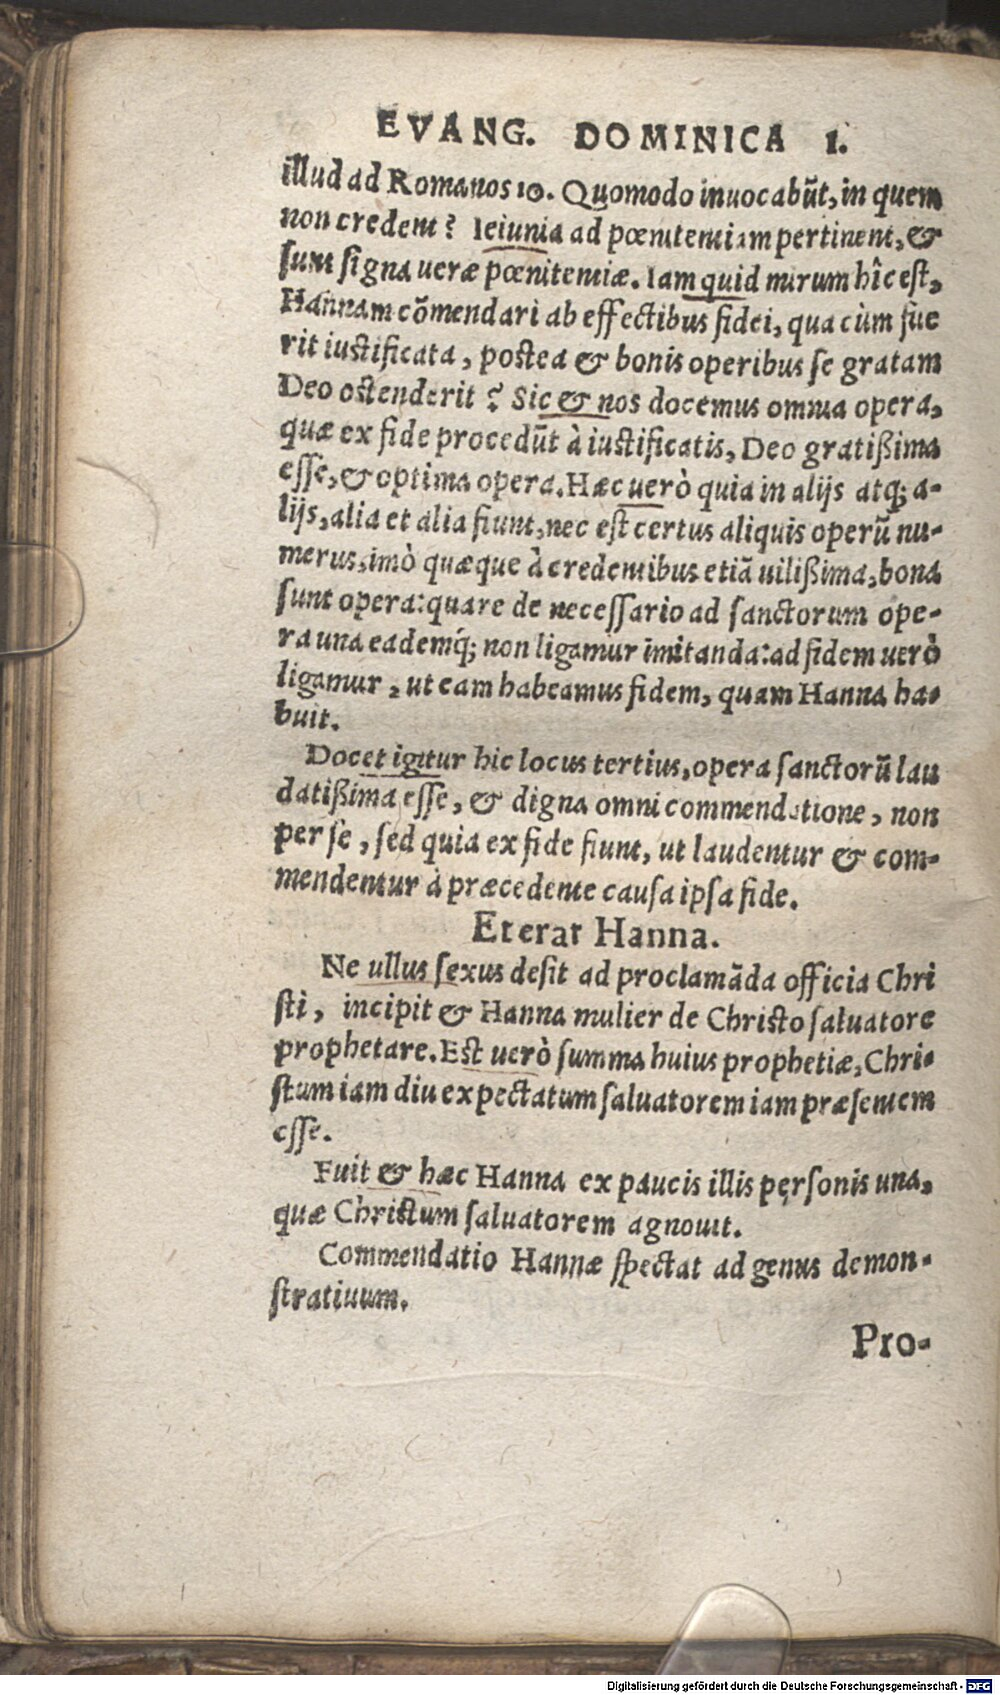 EVANG. DOMINICA 1.
illud ad Romanos 10. Quomodo inuocabũt, in quem
non credent? Ieiunia ad pœnitentiam pertinent, &
sunt signa ueræ pœnitentiæ. Iam quid mirum hîc est,
Hannam cõmendari ab effectibus fidei, qua cùm fue
rit iustificata, postea & bonis operibus se gratam
Deo ostenderit? Sic & nos docemus omnia opera,
quæ ex fide procedũt à iustificatis, Deo gratißima
esse, & optima opera. Hæc uerò quia in alijs atq; a-
lijs, alia et alia fiunt, nec est certus aliquis operũ nu-
merus, imò quæque à credentibus etiã uilißima, bona
sunt opera: quare de necessario ad sanctorum ope-
ra una eademq́; non ligamur imitanda: ad fidem uerò
ligamur, ut eam habeamus fidem, quam Hanna ha-
buit.
Docet igitur hic locus tertius, opera sanctorũ lau
datißima esse, & digna omni commendatione, non
per se, sed quia ex fide fiunt, ut laudentur & com-
mendentur à præcedente causa ipsa fide.
Et erat Hanna.
Ne ullus sexus desit ad proclamãda officia Chri
sti, incipit & Hanna mulier de Christo saluatore
prophetare. Est uerò summa huius prophetiæ, Chri-
stum iam diu expectatum saluatorem iam præsentem
esse.
Fuit & hæc Hanna ex paucis illis personis una,
quæ Christum saluatorem agnouit.
Commendatio Hannæ spectat ad genus demon-
stratiuum.
Pro-
Digitalisierung gefördert durch die Deutsche Forschungsgemeinschaft - DFG